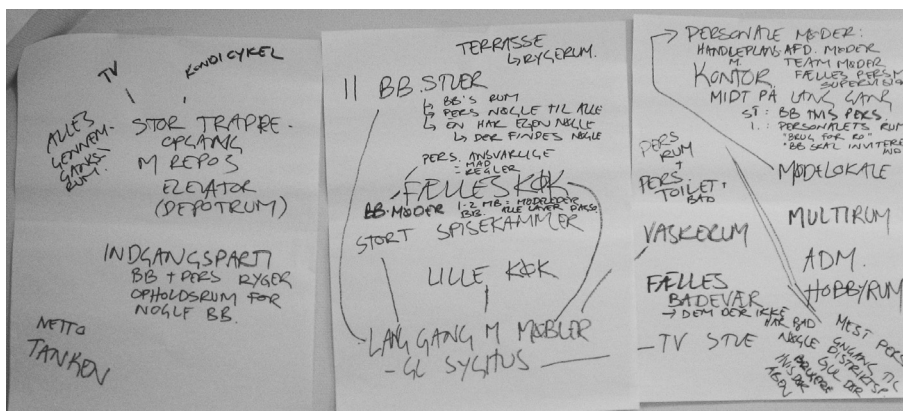 TV
KONDICYKEL
ALLES
GENNEM-
GANGS-
RUM.
STOR TRAPPE-
OPGANG
M REPOS
ELEVATOR
(DEPOTRUM)
INDGANGSPARTI
BB + PERS RYGER
OPHOLDSRUM FOR
NOGLE BB.
NETTO
TANKEN
TERRASSE
↳ RYGERUM.
11 BB. STUER
↳ BB'S RUM
↳ PERS NØGLE TIL ALLE
↳ EN HAR EGEN NØGLE
↳ DER FINDES NØGLE
PERS. ANSVARLIGE
= MAD
= REGLER
FÆLLES KØK
BB-MØDER 1-2 MB = MØDELEDER
BB. ALLE LAVER
STORT SPISEKAMMER
LILLE KØK
LANG GANG M MØBLER
- GL SYGHUS
PERSONALE MØDER:
HANDLEPLANS. AFD. MØDER
M. TEAM MØDER
KONTOR FÆLLES PERSM
SUPERVISION
MIDT PÅ LANG GANG
ST: BB TMS PERS.
1.: PERSONALETS RUM
"BRUG FOR RO"
"BB SKAL INVITERE
PERS
RUM
+
PERS.
TOILET +
BAD
MØDELOKALE
MULTIRUM
VASKERUM
ADM.
HOBBYRUM
FÆLLES
BADEVÆR
→ DEM DER IKKE
HAR BAD
TV STUE
MEST PERS
GNGANG TIL
NØGLE DISTRIKTSP